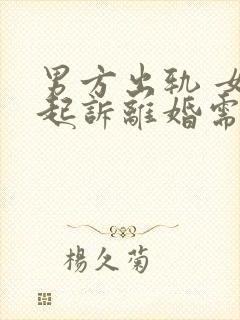 男方出轨 女
起訴離婚需
楊久菊